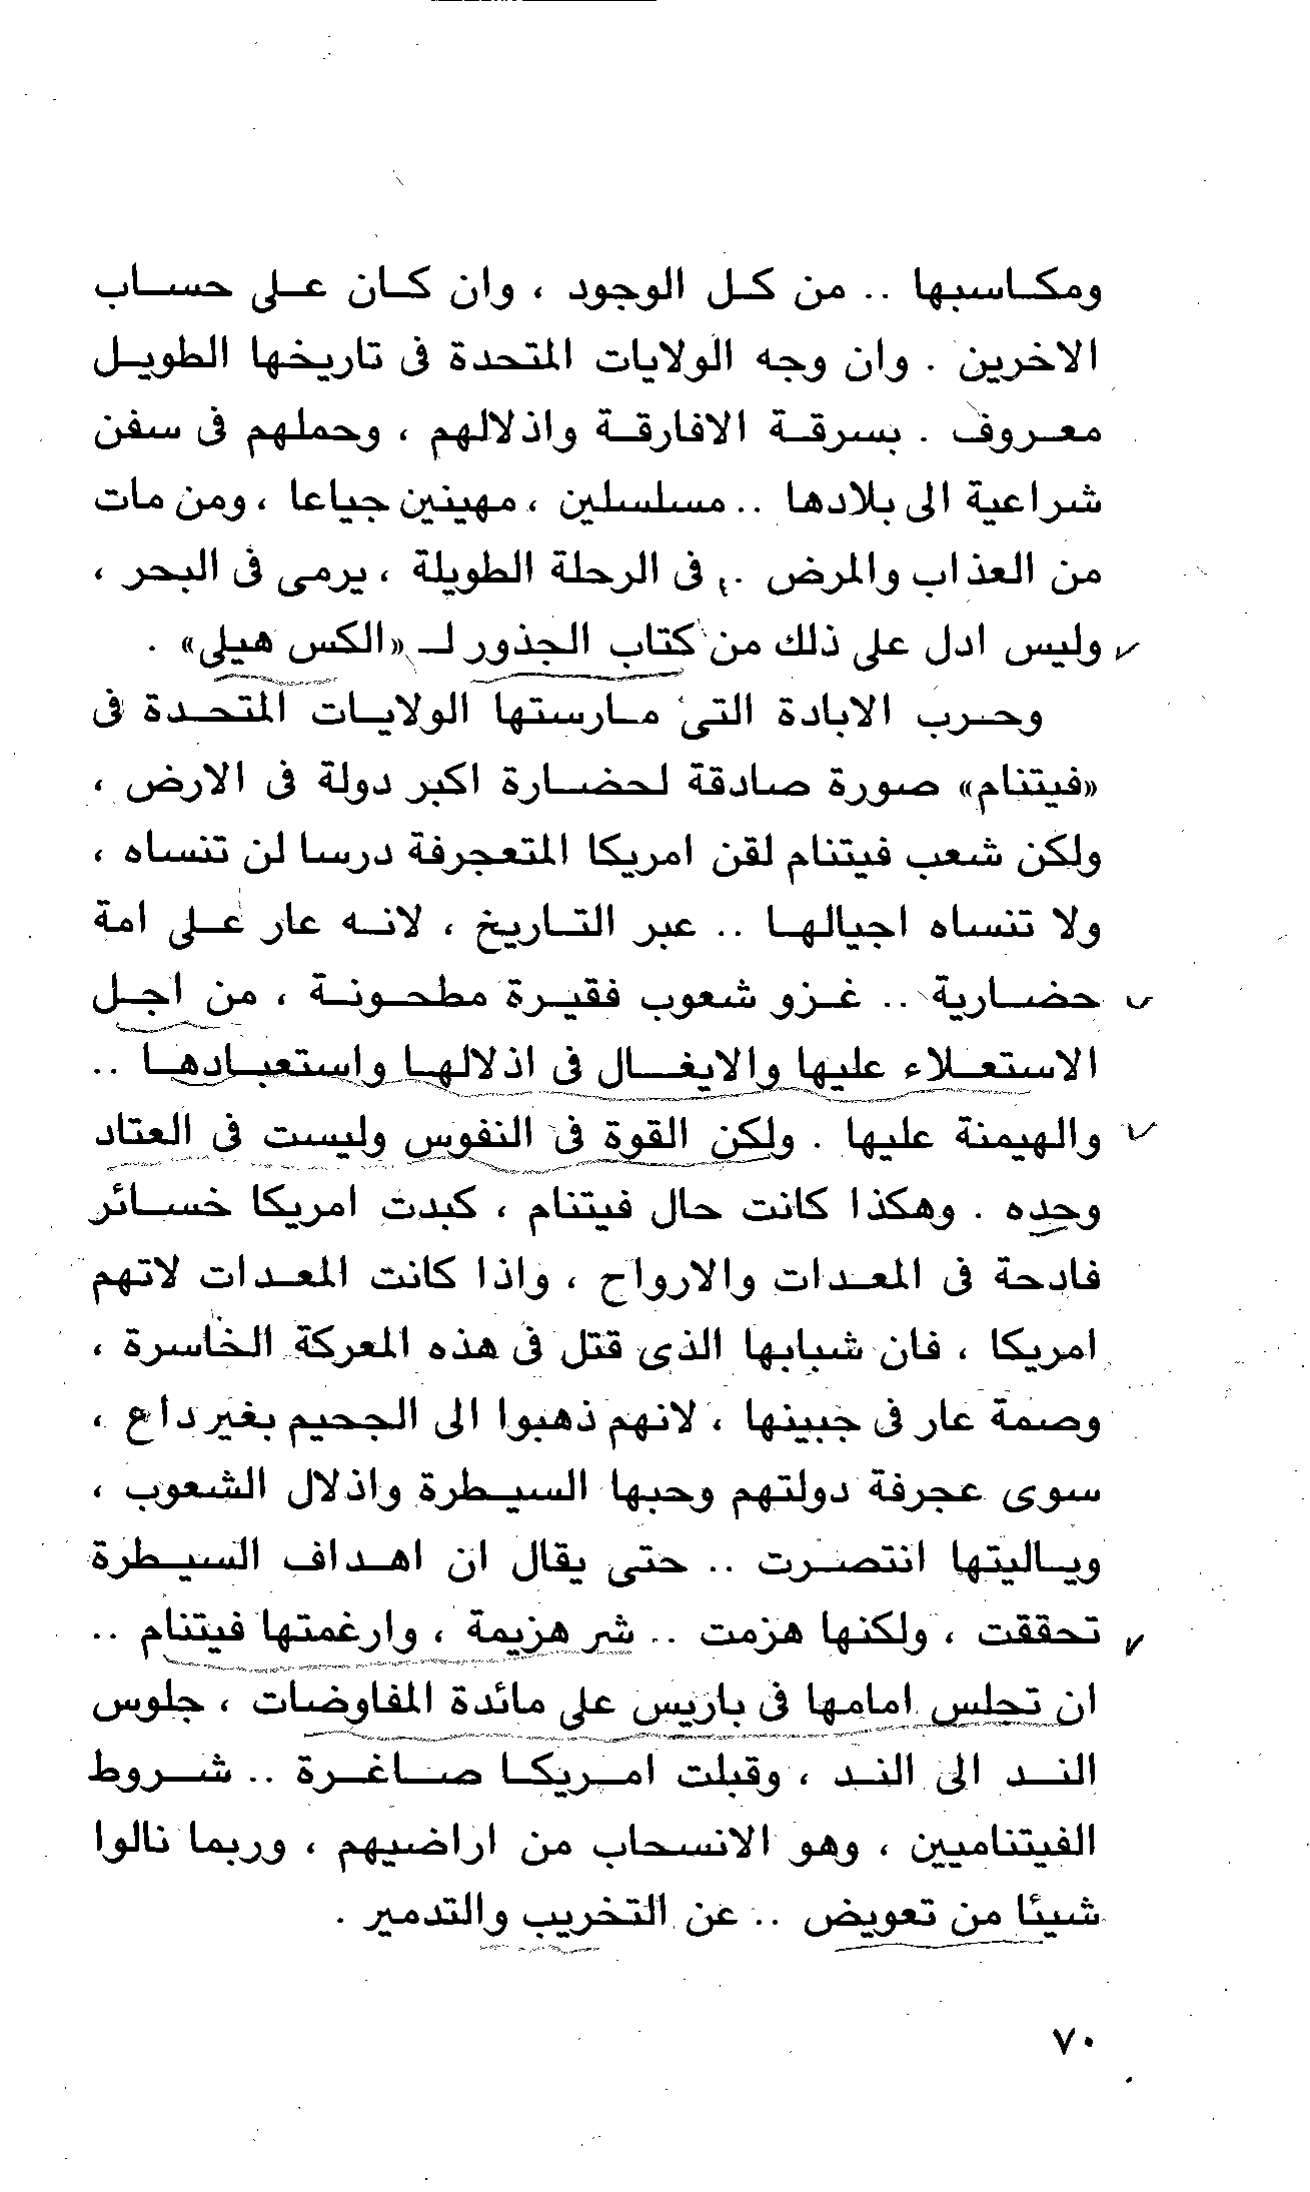 ومكاسبها .. من كل الوجود ، وان كان على حساب
الاخرين . وان وجه الولايات المتحدة فى تاريخها الطويل
معروف . بسرقة الافارقة واذلالهم ، وحملهم فى سفن
شراعية الى بلادها .. مسلسلين ، مهينين جياعا ، ومن مات
من العذاب والمرض .. فى الرحلة الطويلة ، يرمى فى البحر ،
وليس ادل على ذلك من كتاب الجذور لـ «الكس هيلى» .
وحرب الابادة التى مارستها الولايات المتحدة فى
«فيتنام» صورة صادقة لحضارة اكبر دولة فى الارض ،
ولكن شعب فيتنام لقن امريكا المتعجرفة درسا لن تنساه ،
ولا تنساه اجيالها .. عبر التاريخ ، لانه عار على امة
حضارية .. غزو شعوب فقيرة مطحونة ، من اجل
الاستعلاء عليها والايغال فى اذلالها واستعبادها ..
والهيمنة عليها . ولكن القوة فى النفوس وليست فى العتاد
وحده . وهكذا كانت حال فيتنام ، كبدت امريكا خسائر
فادحة فى المعدات والارواح ، واذا كانت المعدات لاتهم
امريكا ، فان شبابها الذى قتل فى هذه المعركة الخاسرة ،
وصمة عار فى جبينها ، لانهم ذهبوا الى الجحيم بغير داع ،
سوى عجرفة دولتهم وحبها السيطرة واذلال الشعوب ،
وياليتها انتصرت .. حتى يقال ان اهداف السيطرة
تحققت ، ولكنها هزمت .. شر هزيمة ، وارغمتها فيتنام ..
ان تجلس امامها فى باريس على مائدة المفاوضات ، جلوس
الند الى الند ، وقبلت امريكا صاغرة .. شروط
الفيتناميين ، وهو الانسحاب من اراضيهم ، وربما نالوا
شيئا من تعويض .. عن التخريب والتدمير .
٧٠